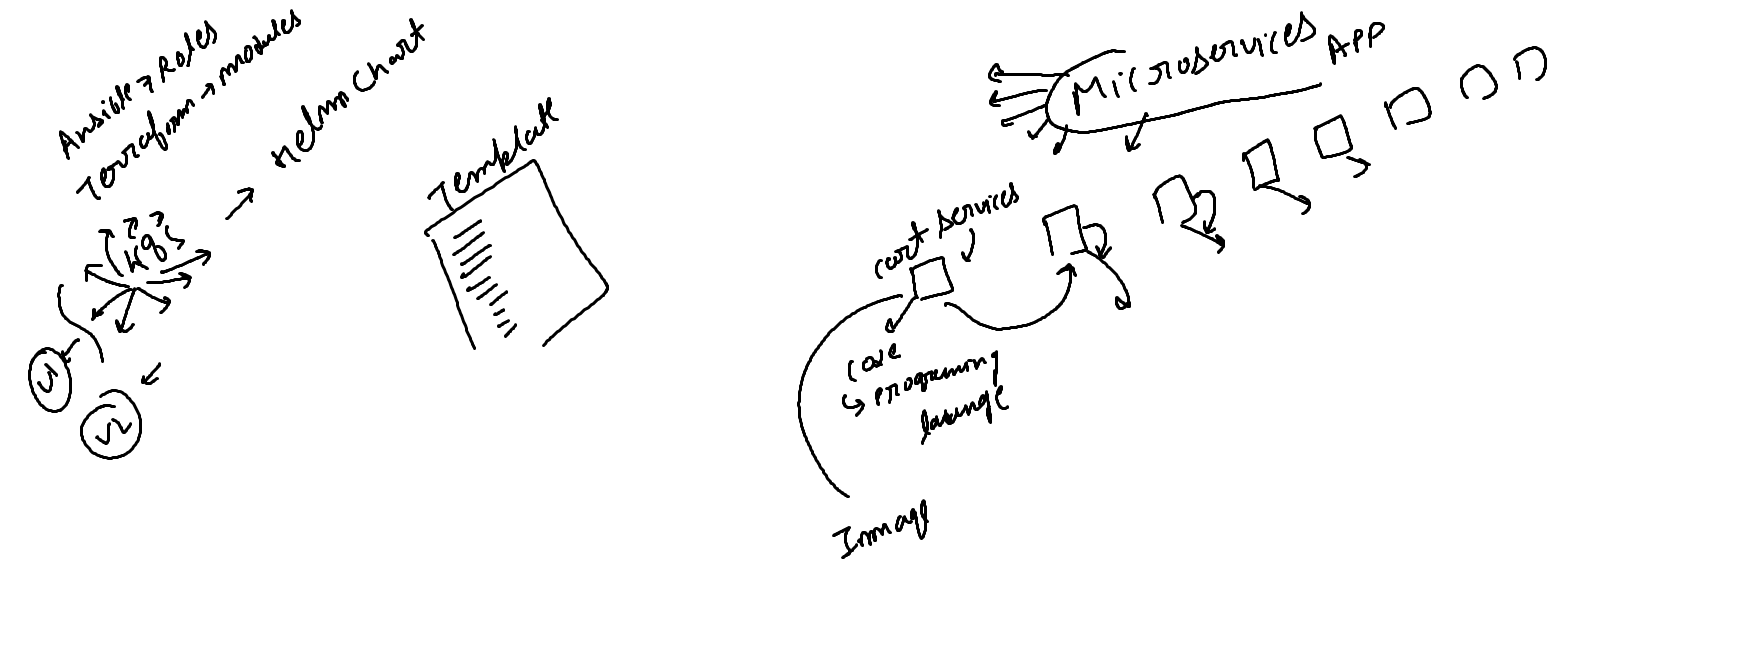 Ansible → Roles
Terraform → modules
Helm Chart
K8s
V1
V2
Template
Microservices APP
cart services
code
↳ programing
launge
Immage